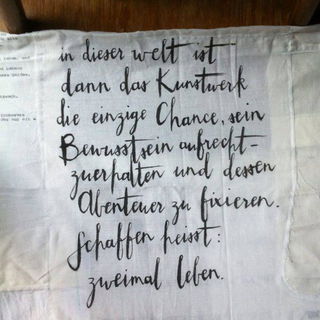 in dieser welt ist
dann das Kunstwerk
die einzige Chance, sein
Bewusstsein aufrecht-
zuerhalten und dessen
Abenteuer zu fixieren.
Schaffen heisst:
zweimal leben.